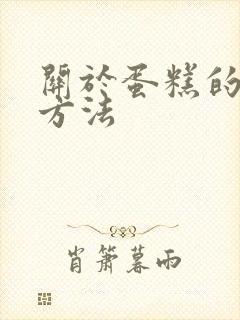 關於蛋糕的
方法
肖簫暮雨